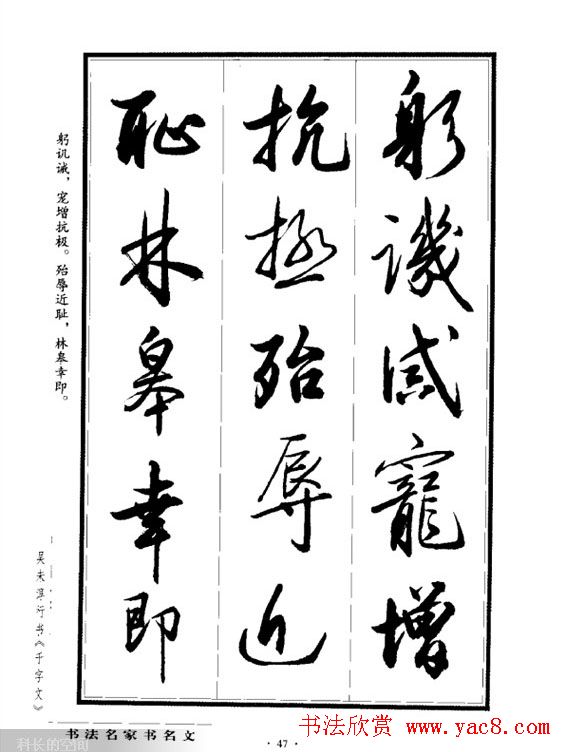 躬譏誡寵增
抗極殆辱近
耻林皋幸即
躬讥诫，宠增抗极。殆辱近耻，林皋幸即。
吴未淳行书《千字文》
书法名家书名文
·47·
书法欣赏 www.yac8.com
科长的空间